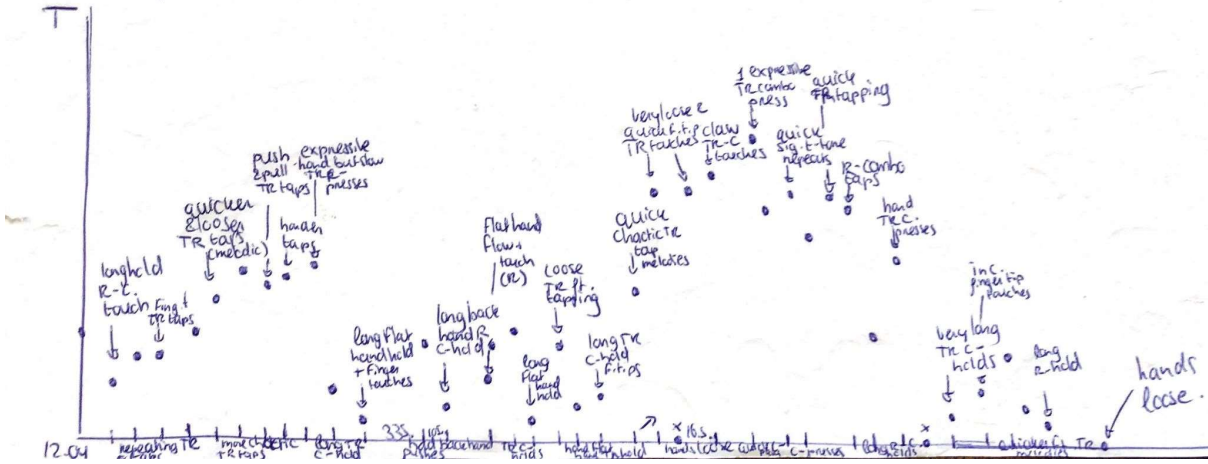 T
long hold
R-t.
touch
Fing t
TR taps
quicker
& looser
TR taps
(melodic)
push
& pull
TR taps
expressive
hand but slow
TR R-
presses
harder
taps
long flat
hand hold
+ finger
touches
long back
hand R
C-hold
Flat hand
flow +
touch
(R)
long
flat
hand
hold
loose
TR ft.
tapping
long TR
C-hold
F.tips
quick
chaotic TR
tap
melodies
very loose &
quick f.tip
TR touches
claw
TR-C
touches
1 expressive
TR combo
press
quick
sig. t-tone
repeats
quick
TR tapping
R-combo
taps
hand
TR C.
presses
very long
TR C-
holds
in C.
finger tip
touches
long
R-hold
hands
loose.
12.04
repeating TR
more chaotic
TR taps
long TR
C-hold
33s.
10s.
hold back hand
pushes
TR C-
holds
hand flat
hold
x 16s.
hands loose
C-presses
long TR C-
holds
x
quicker f.t. TR
melodies